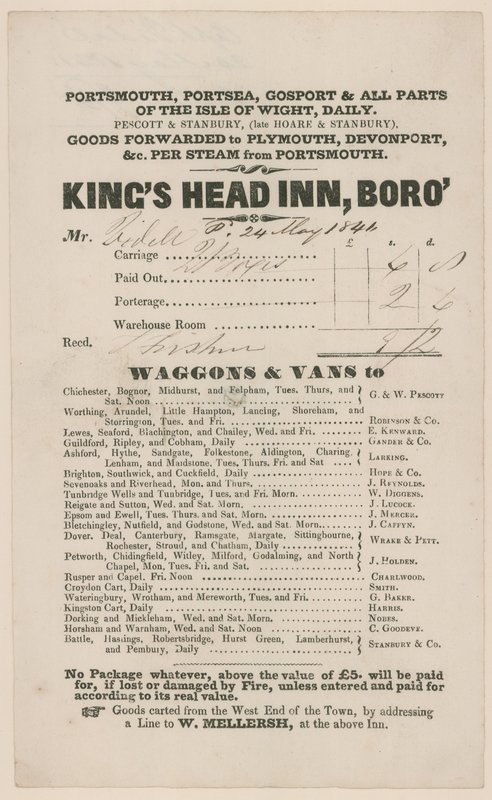 PORTSMOUTH, PORTSEA, GOSPORT & ALL PARTS
OF THE ISLE OF WIGHT, DAILY.
PESCOTT & STANBURY, (late HOARE & STANBURY),
GOODS FORWARDED to PLYMOUTH, DEVONPORT,
&c. PER STEAM from PORTSMOUTH.
KING'S HEAD INN, BORO'
P. 24 May 1844
Mr.
£ s. d.
Carriage 6 8
Paid Out
Porterage 2 6
Warehouse Room
Recd. 9 / 2
WAGGONS & VANS to
Chichester, Bognor, Midhurst, and Felpham, Tues. Thurs, and
Sat. Noon } G. & W. PESCOTT
Worthing, Arundel, Little Hampton, Lancing, Shoreham, and
Storrington, Tues. and Fri. ROBINSON & Co.
Lewes, Seaford, Blachington, and Chailey, Wed. and Fri. E. KENWARD.
Guildford, Ripley, and Cobham, Daily GANDER & Co.
Ashford, Hythe, Sandgate, Folkestone, Aldington, Charing,
Lenham, and Maidstone, Tues, Thurs, Fri. and Sat } LARKING.
Brighton, Southwick, and Cuckfield, Daily HOPE & Co.
Sevenoaks and Riverhead, Mon. and Thurs. J. REYNOLDS.
Tunbridge Wells and Tunbridge, Tues. and Fri. Morn. W. DIGGENS.
Reigate and Sutton, Wed. and Sat. Morn. J. LUCOCK.
Epsom and Ewell, Tues. Thurs. and Sat. Morn. J. MERCER.
Bletchingley, Nutfield, and Godstone, Wed. and Sat. Morn. J. CAFFYN.
Dover, Deal, Canterbury, Ramsgate, Margate, Sittingbourne,
Rochester, Stroud, and Chatham, Daily } WRAKE & PETT.
Petworth, Chidingfield, Witley, Milford, Godalming, and North
Chapel, Mon, Tues. Fri. and Sat. } J. HOLDEN.
Rusper and Capel. Fri. Noon CHARLWOOD.
Croydon Cart, Daily SMITH.
Wateringbury, Wrotham, and Mereworth, Tues. and Fri. G. BAKER.
Kingston Cart, Daily HARRIS.
Dorking and Mickleham, Wed. and Sat. Morn. NOBES.
Horsham and Warnham, Wed. and Sat. Noon C. GOODEVE.
Battle, Hastings, Robertsbridge, Hurst Green, Lamberhurst,
and Pembury, Daily } STANBURY & Co.
No Package whatever, above the value of £5. will be paid
for, if lost or damaged by Fire, unless entered and paid for
according to its real value.
☞ Goods carted from the West End of the Town, by addressing
a Line to W. MELLERSH, at the above Inn.